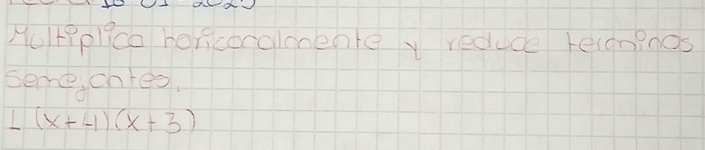 Moltiplica horiconalmente y reduce terminos
semejantes.
1 (x+4)(x+3)